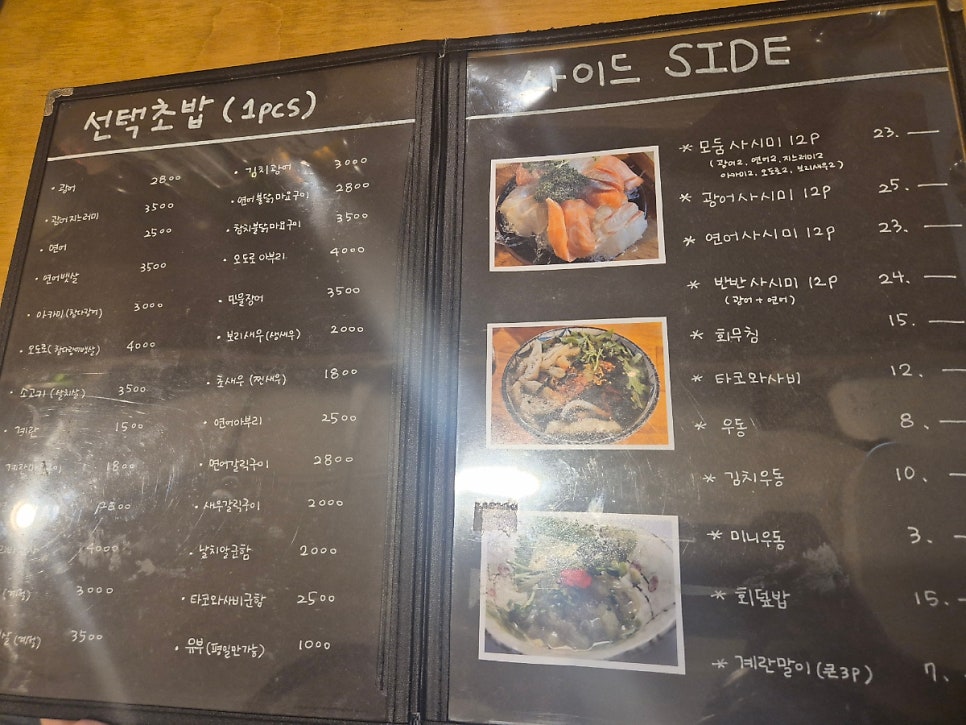 선택초밥 (1pcs)
· 광어 2800
· 광어지느러미 3500
· 연어 2500
· 연어뱃살 3500
· 아카미(참다랑어) 3000
· 오도로(참다랑어뱃살) 4000
· 소고기 (살치살) 3500
· 계란 1500
1800
4000
3000
(계절) 3500
· 김치광어 3000
· 연어불닭마요구이 2800
· 참치불닭마요구이 3500
· 오도로아부리 4000
· 민물장어 3500
· 보리새우(생새우) 2000
· 초새우 (찐새우) 1800
· 연어아부리 2500
· 연어갈릭구이 2800
· 새우갈릭구이 2000
· 날치알군함 2000
· 타코와사비군함 2500
· 유부(평일만가능) 1000
사이드 SIDE
* 모둠사시미 12p 23.—
(광어2, 연어2, 지느러미2
아카미2, 오도로2, 보리새우2)
* 광어사시미 12p 25.—
* 연어사시미 12p 23.—
* 반반사시미 12p 24.—
(광어+연어)
* 회무침 15.—
* 타코와사비 12.—
* 우동 8.—
* 김치우동 10.—
* 미니우동 3.—
* 회덮밥 15.-
* 계란말이(큰3p) 7.